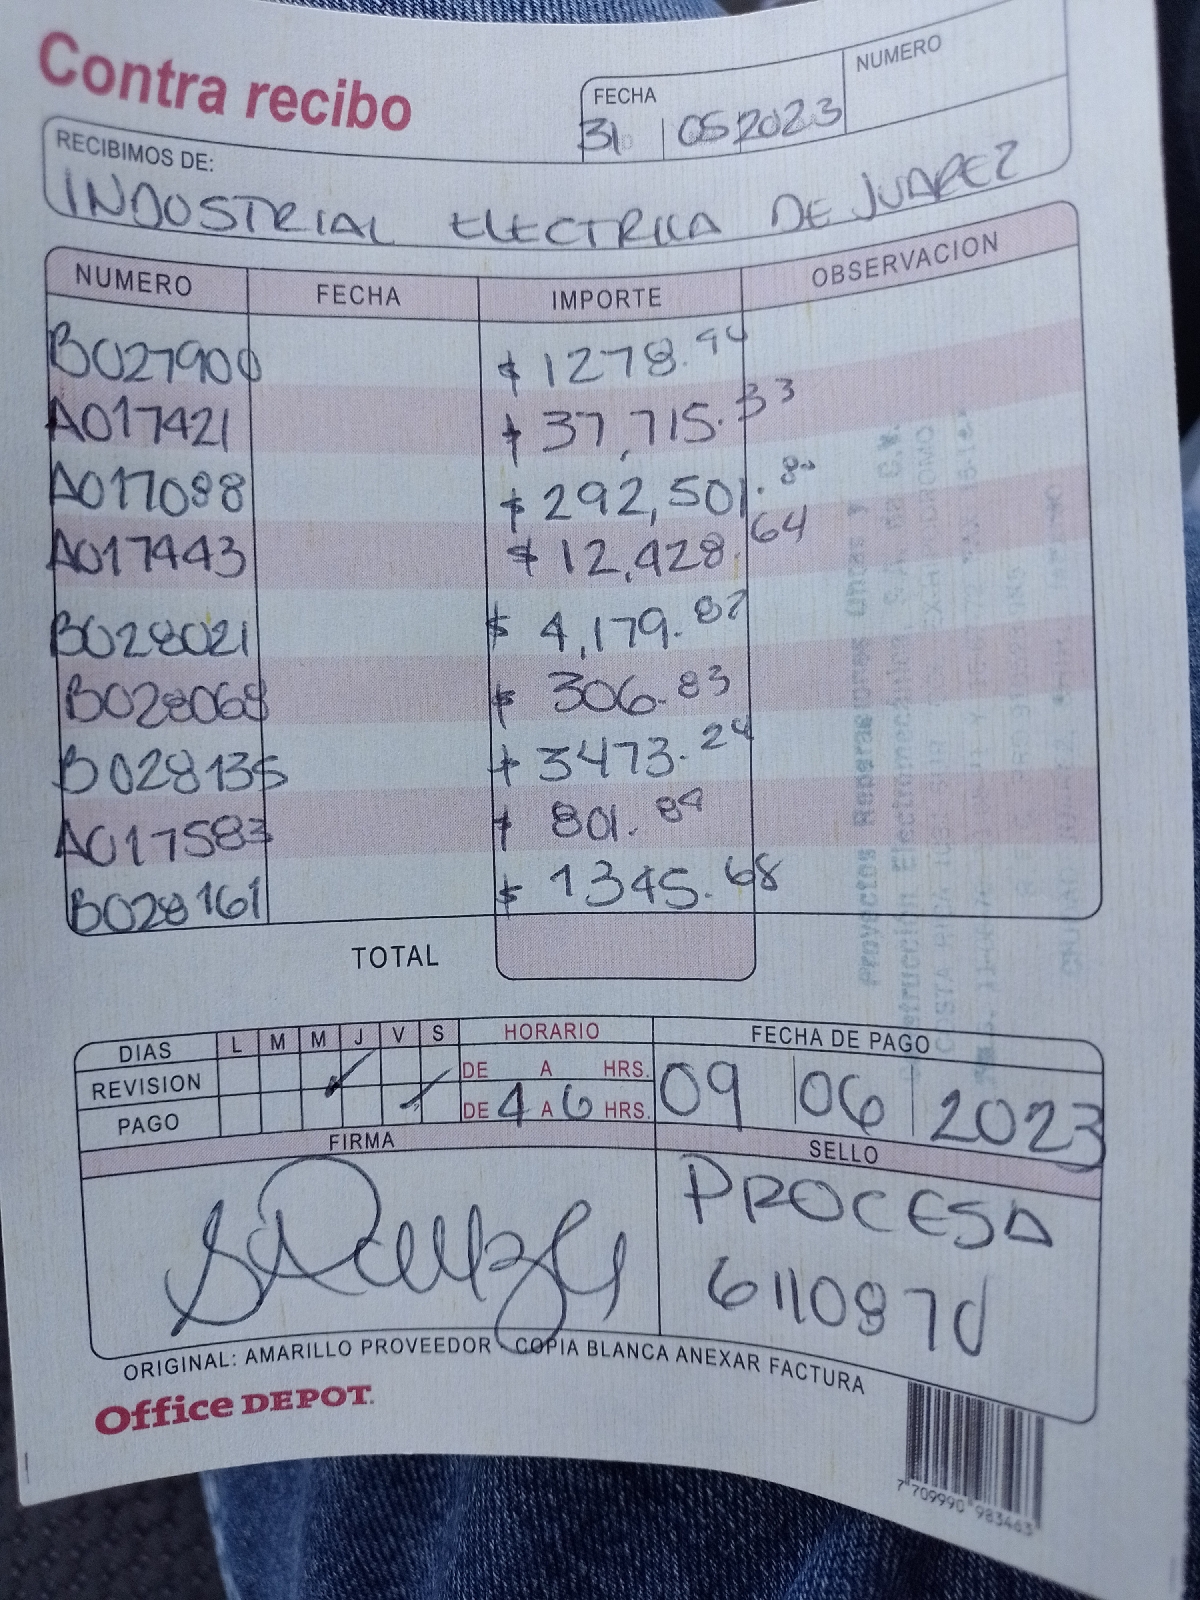 Contra recibo
FECHA
NUMERO
31 05 2023
RECIBIMOS DE:
INDUSTRIAL ELECTRICA DE JUAREZ
NUMERO FECHA IMPORTE OBSERVACION
B027900 $ 1278.94
A017421 $ 37,715.33
A017088 $ 292,501.80
A017443 $ 12,428.64
B028021 $ 4,179.82
B028068 $ 306.83
B028135 $ 3473.24
A017583 $ 801.84
B028161 $ 1345.68
TOTAL
DIAS L M M J V S HORARIO FECHA DE PAGO
REVISION DE A HRS.
PAGO DE 4 A 6 HRS. 09 06 2023
FIRMA SELLO
PROCESA
ORIGINAL: AMARILLO PROVEEDOR COPIA BLANCA ANEXAR FACTURA
Office DEPOT.
7 709990 983463